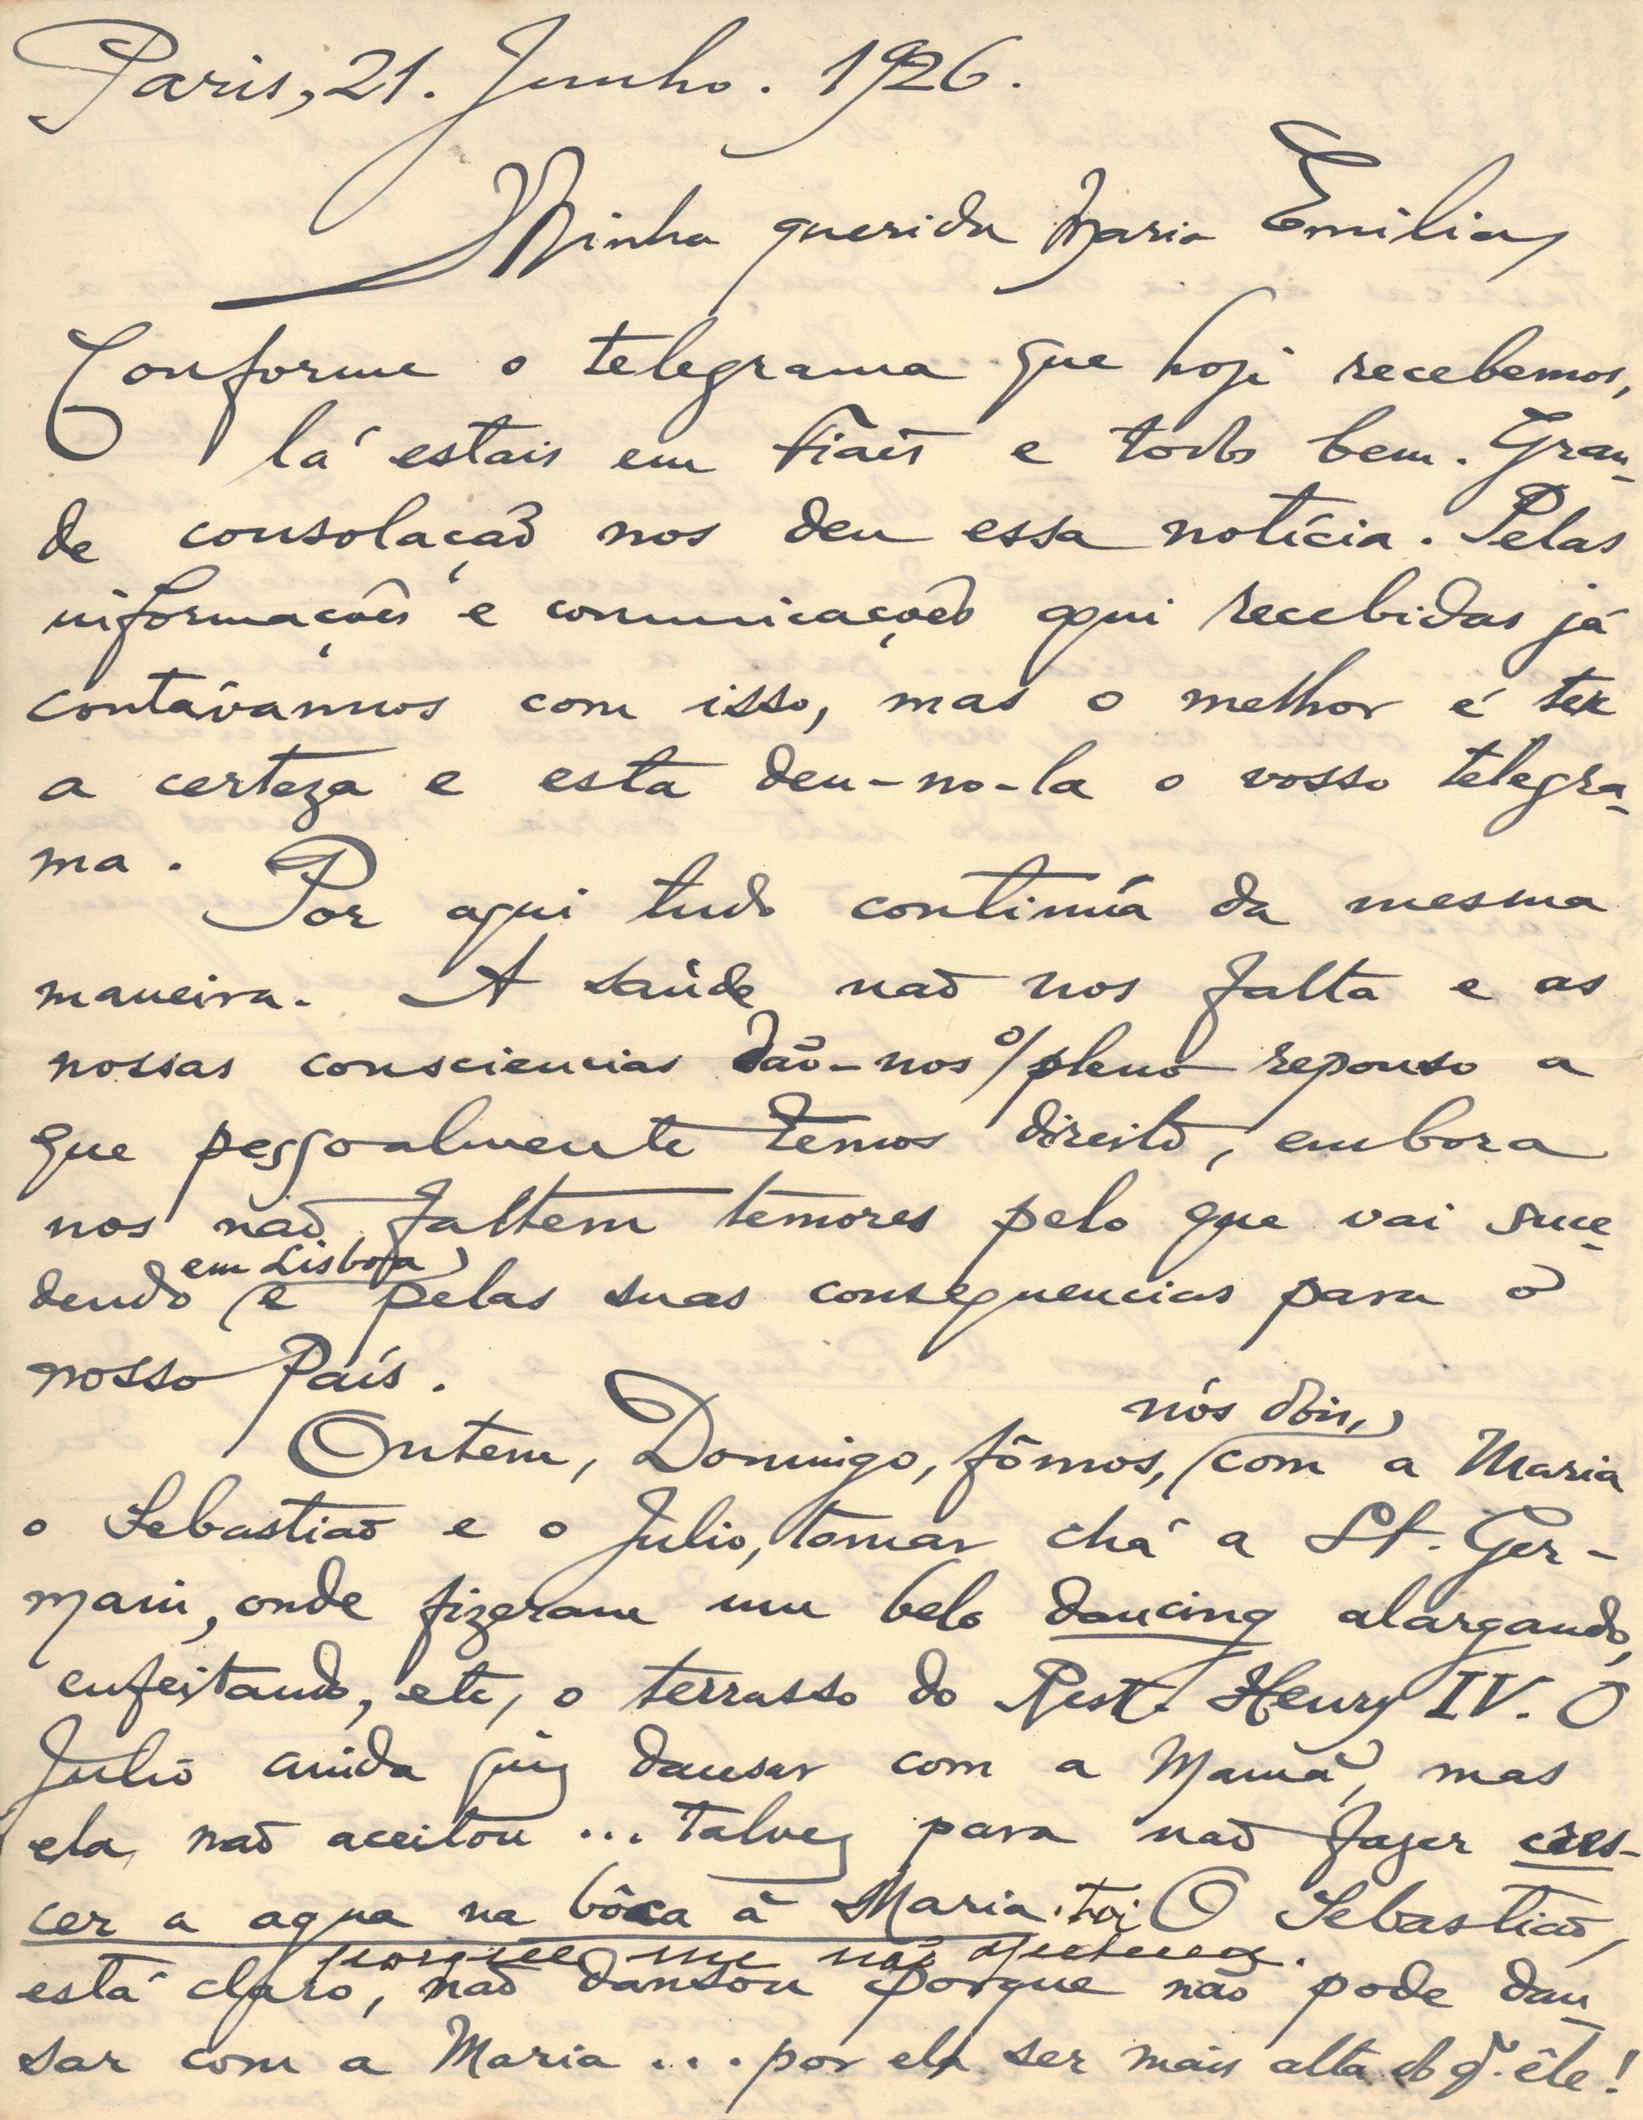 Paris, 21. Junho. 1926.
Minha querida Maria Emilia,
Conforme o telegrama que hoje recebemos,
lá estais em Fiais e todos bem. Gran-
de consolação nos deu essa notícia. Pelas
informações e comunicações aqui recebidas já
contávamos com isso, mas o melhor é ter
a certeza e esta deu-no-la o vosso telegra-
ma.
Por aqui tudo continúa da mesma
maneira. A saúde não nos falta e as
nossas consciencias dão-nos o pleno repouso a
que pessoalmente temos direito, embora
nos não faltem temores pelo que vai suce-
em Lisboa
dendo e pelas suas consequencias para o
nosso País.
nós dois,
Ontem, Domingo, fômos, com a Maria
o Sebastião e o Julio, tomar chá a St. Ger-
main, onde fizeram um belo dancing alargando,
enfeitando, etc, o terrasso do Rest. Henry IV. O
Julio ainda quiz dansar com a Mamã, mas
ela não aceitou ... talvez para não fazer cres-
cer a agua na bôca á Maria. Foi O Sebastião,
porque me não quizeram.
está claro, não dansou porque não pode dan-
sar com a Maria ... por ela ser mais alta do q. êle!